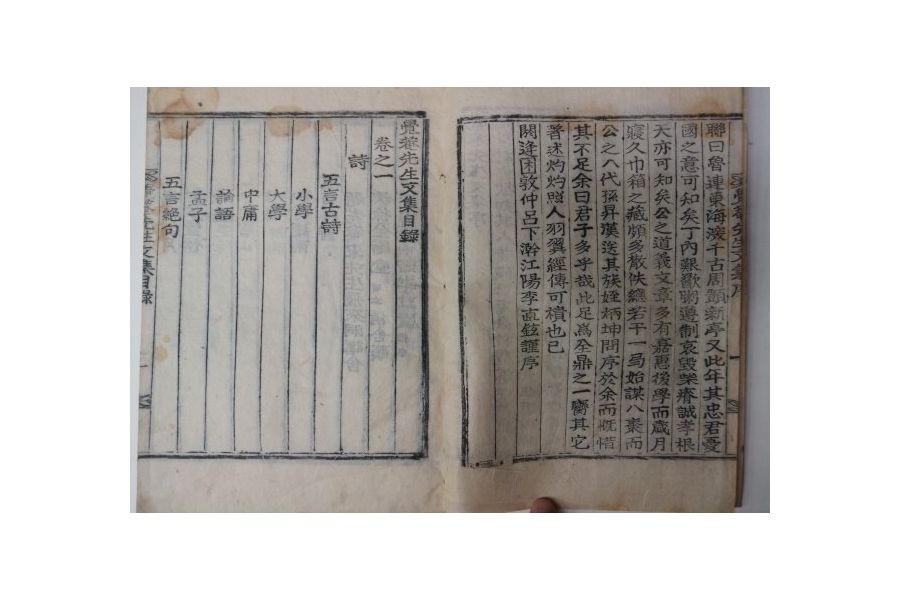 聯曰魯連東海淚千古周顗新亭又此年其忠君憂
國之意可知矣丁內艱歠粥遵制哀毀欒瘠誠孝根
天亦可知矣公之道義文章多有嘉惠後學而歲月
寢久巾箱之藏頗多散佚纔若干一局始謀入棗而
公之八代孫昇漢送其族姪炳坤問序於余而慨惜
其不足余曰君子多乎哉此足爲全鼎之一臠其它
著述灼灼照人羽翼經傳可槓也已
閼逢困敦仲呂下澣江陽李直鉉謹序
覺菴先生文集目錄
卷之一
詩
五言古詩
小學
大學
中庸
論語
孟子
五言絶句